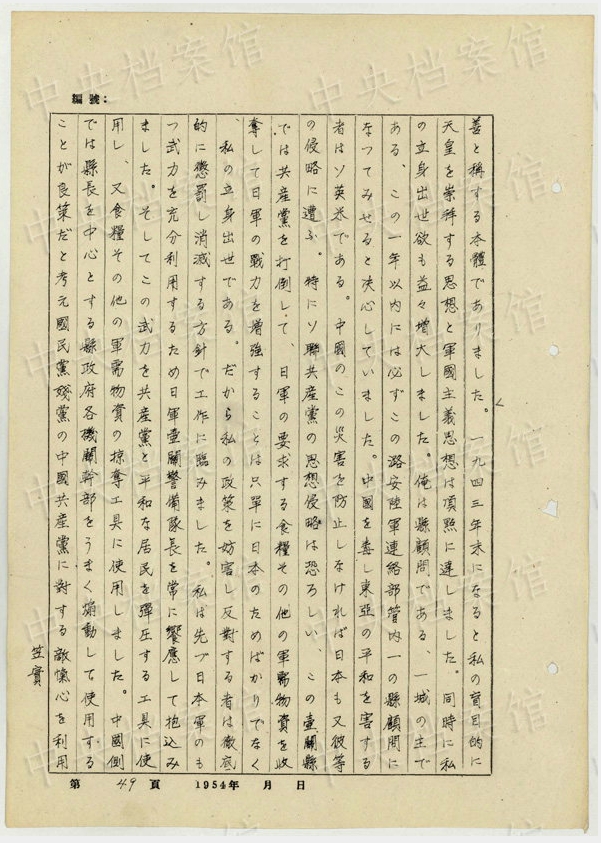 編號:
善と稱する本體でありました。一九四三年末になると私の盲目的に
天皇を崇拜する思想と軍國主義思想は頂點に達しました。同時に私
の立身出世欲も益々增大しました。俺は縣顧問である、一城の主で
ある、この一年以内には必ずこの潞安陸軍連絡部管内一の縣顧問に
なつてみせると決心していました。中國を毒し東亞の平和を害する
者はソ英米である。中國のこの災害を防止しなければ日本も又彼等
の侵略に遭ふ。特にソ聯共産黨の思想侵略は恐ろしい、この壷關縣
では共産黨を打倒して、日軍の要求する食糧その他の軍需物資を收
奪して日軍の戰力を增強することは只單に日本のためばかりでなく
、私の立身出世である。だから私の政策を妨害し反對する者は徹底
的に懲罰し消滅する方針で工作に臨みました。私は先づ日本軍のも
つ武力を充分利用するため日軍壷關警備隊長を常に饗應して抱込み
ました。そしてこの武力を共産黨と平和な居民を彈圧する工具に使
用し、又食糧その他の軍需物資の掠奪工具に使用しました。中國側
では縣長を中心とする縣政府各機關幹部をうまく煽動して使用する
ことが良策だと考え國民黨殘黨の中國共産黨に對する敵黨心を利用
笠實
第 49 頁 1954年 月 日
中央档案馆